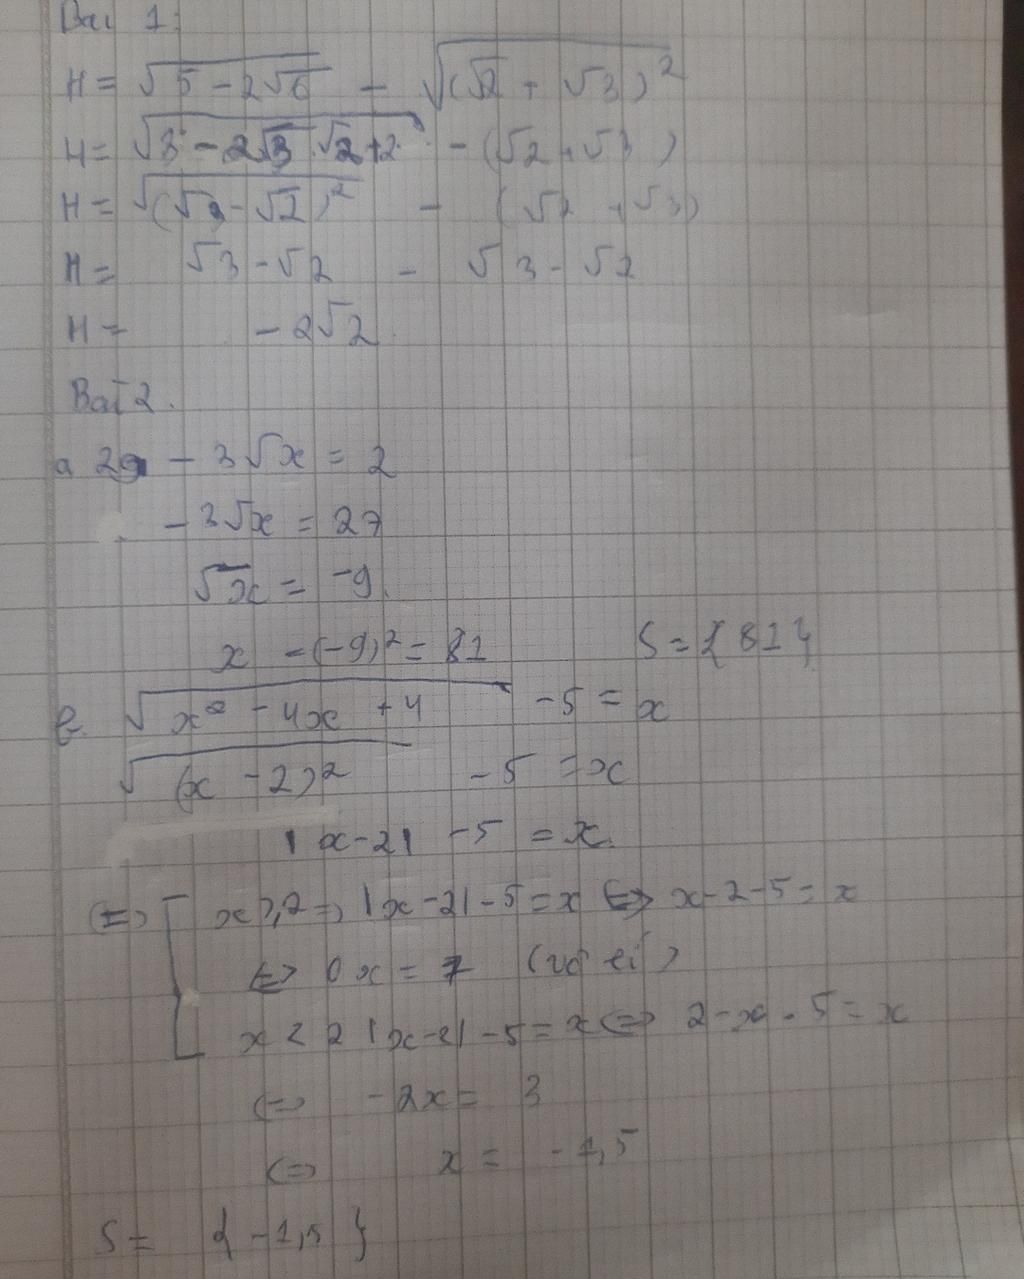 Bài 1:
H = √5 - 2√6 - √(√2 + √3)²
H = √3 - 2√3.√2 + 2 - (√2 + √3)
H = √(√3 - √2)² - (√2 + √3)
H = √3 - √2 - √3 - √2
H = - 2√2
Bài 2.
a 29 - 3√x = 2
- 3√x = 27
√x = -9
x = (-9)² = 81 S = {81}
b. √x² - 4x + 4 - 5 = x
√(x - 2)² - 5 = x
|x - 2| - 5 = x
⇔ [ x ⩾ 2 ⇒ |x - 2| - 5 = x ⇔ x - 2 - 5 = x
⇔ 0x = 7 (vô lí)
x < 2 |x - 2| - 5 = x ⇔ 2 - x - 5 = x
⇔ - 2x = 3
⇔ x = - 1,5
S = {-1,5}